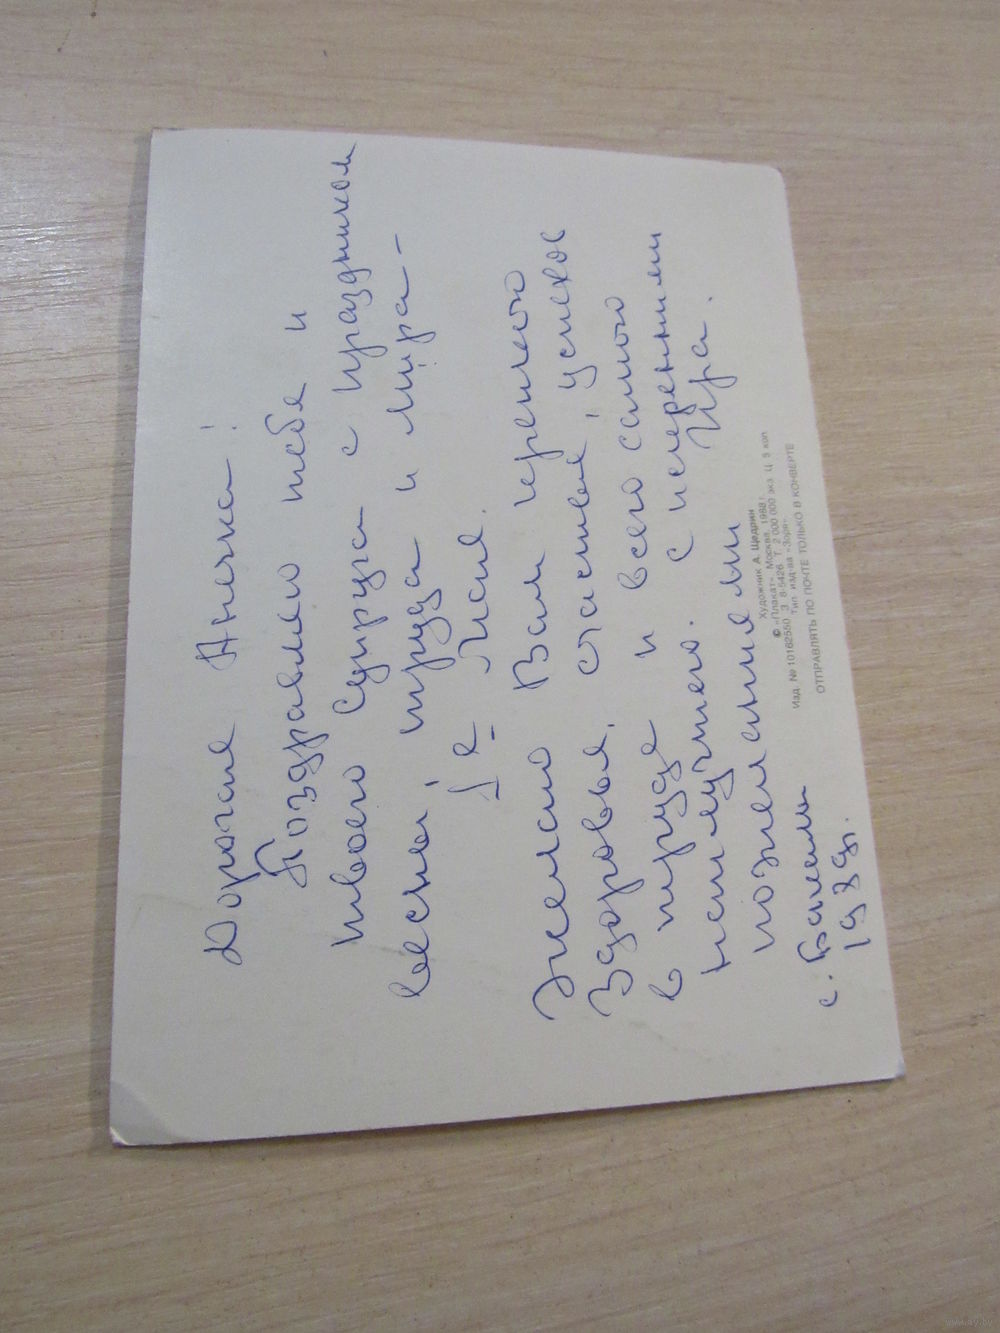 Дорогая Анечка!
Поздравляю тебя и
твоего супруга с праздником
весны, труда и мира –
1е Мая.
Желаю Вам крепкого
здоровья, счастья, успехов
в труде и всего самого
наилучшего. С искренними
пожеланиями Ира.
с.
1989г.
Художник А. Щедрин
© «Плакат», Москва, 1988 г.
Изд. № 10162550 З. 8-5426 Т. 2 000 000 экз. Ц. 5 коп
Тип. изд-ва «Зоря»
ОТПРАВЛЯТЬ ПО ПОЧТЕ ТОЛЬКО В КОНВЕРТЕ
www.ay.by